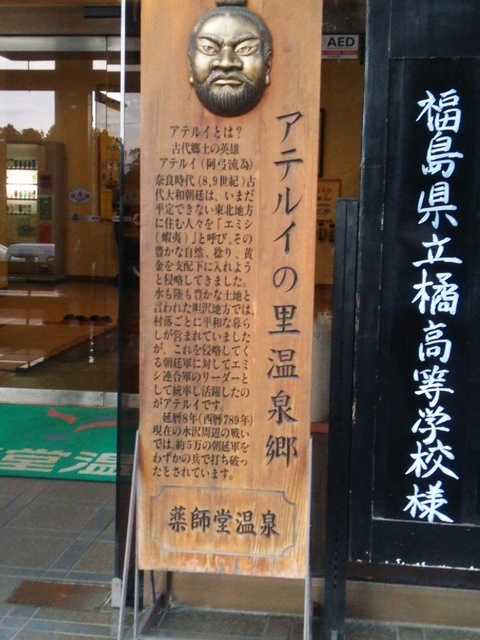 AED
福島県立橘高等学校様
アテルイの里温泉郷
アテルイとは?
古代郷土の英雄
アテルイ(阿弖流為)
奈良時代(8,9世紀)古
代大和朝廷は、いまだ
平定できない東北地方
に住む人々を「エミシ
(蝦夷)」と呼び、その
豊かな自然、稔り、黄
金を支配下に入れよう
と侵略してきました。
水も陸も豊かな土地と
言われた胆沢地方では、
村落ごとに平和な暮ら
しが営まれていました
が、これを侵略してく
る朝廷軍に対してエミ
シ連合軍のリーダーと
して統率し活躍したの
がアテルイです。
延暦8年(西暦789年)
現在の水沢周辺の戦い
では、約5万の朝廷軍を
わずかの兵で打ち破っ
たとされています。
薬師堂温泉
堂温